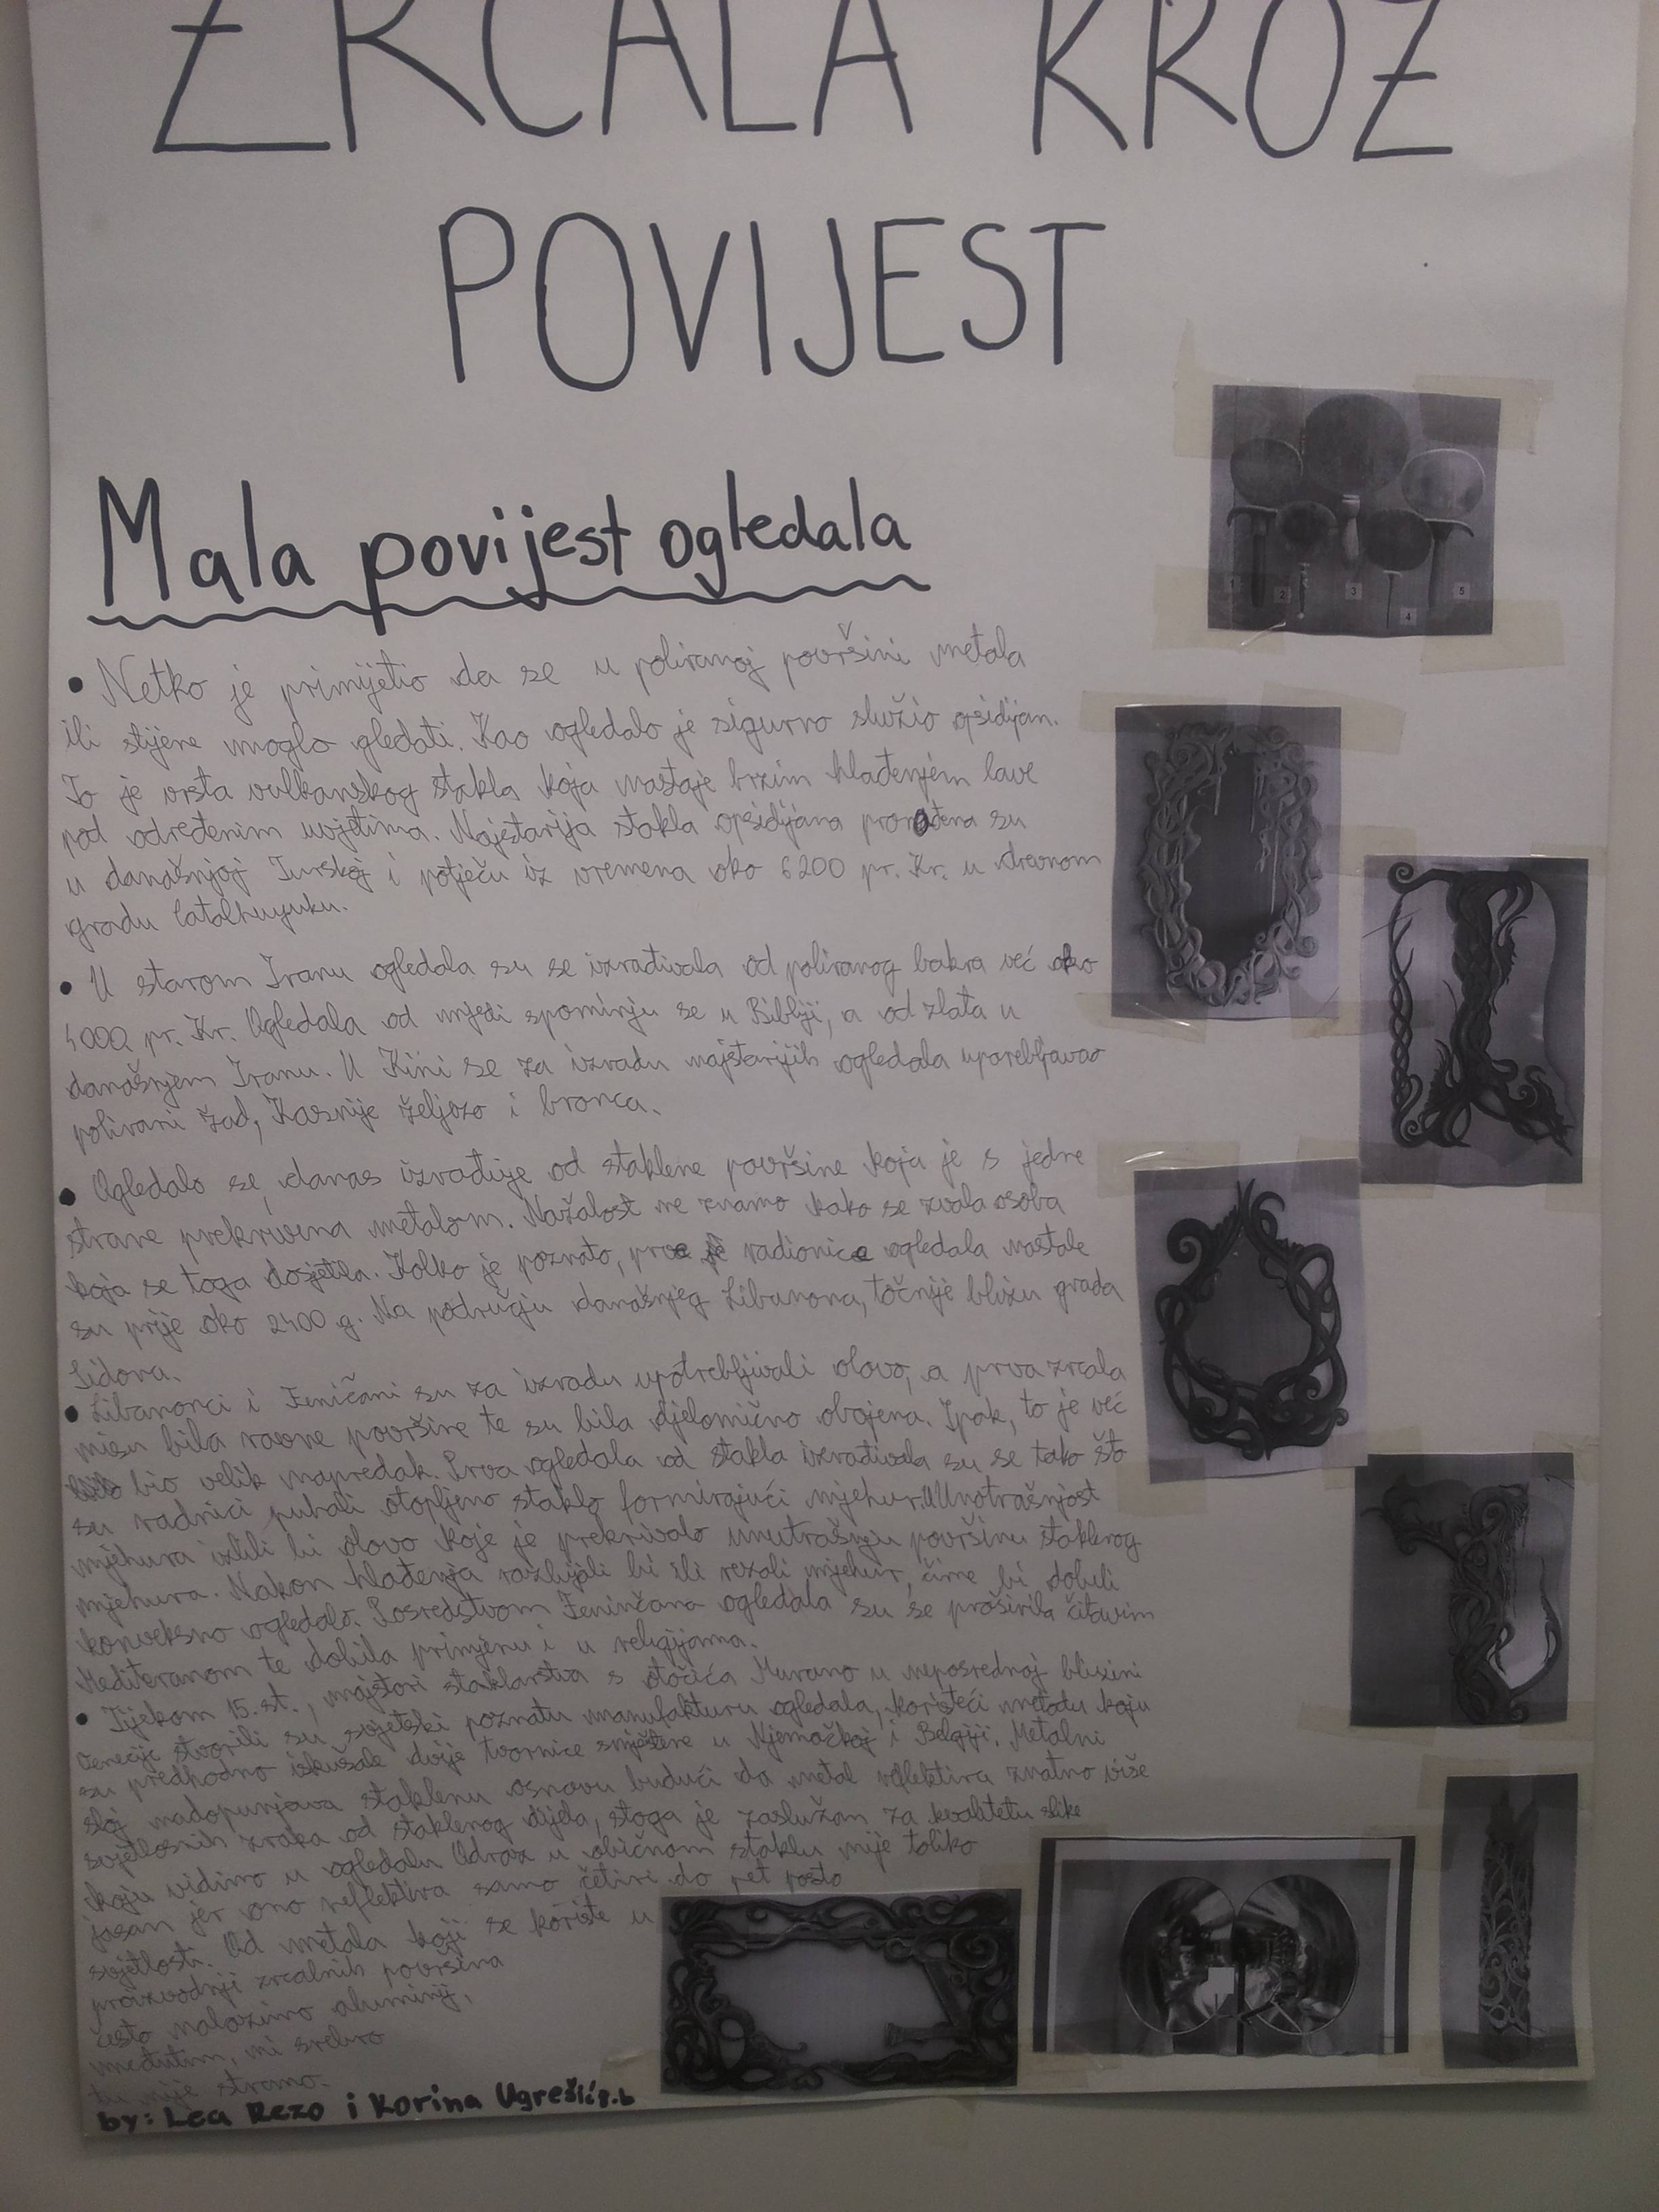 ZRCALA KROZ
POVIJEST
Mala povijest ogledala
• Netko je primijetio da se u poliranoj površini metala
ili stijene moglo gledati. Kao ogledalo je sigurno služio opsidijan.
To je vrsta vulkanskog stakla koja nastaje brzim hlađenjem lave
pod određenim uvjetima. Najstarija stakla opsidijana pronađena su
u današnjoj Turskoj i potječu iz vremena oko 6200 pr. Kr. u drevnom
gradu Catalhuyuku.
• U starom Iranu ogledala su se izrađivala od poliranog bakra već oko
4000. pr. Kr. Ogledala od mjedi spominju se u Bibliji, a od zlata u
današnjem Iranu. U Kini se za izradu najstarijih ogledala uporebljavao
polirani žad, Kasnije željezo i bronca.
• Ogledalo se danas izrađuje od staklene površine koja je s jedne
strane prekrivena metalom. Nažalost ne znamo kako se zvala osoba
koja se toga dosjetila. Kolko je poznato, prve radionice ogledala nastale
su prije oko 2400 g. Na području današnjeg Libanona, točnije blizu grada
Sidona.
• Libanonci i Feničani su za izradu upotrebljivali olovo, a prva zrcala
nisu bila ravne površine te su bila djelomično obojena. Ipak, to je već
bio velik napredak. Prva ogledala od stakla izrađivala su se tako što
su radnici puhali otopljeno staklo formirajući mjehur. U Unutrašnjost
mjehura izlili bi olovo koje je prekrivalo unutrašnju površinu staklenog
mjehura. Nakon hlađenja razbijali bi ili rezali mjehur, čime bi dobili
konveksno ogledalo. Posredstvom Feninčana ogledala su se proširila čitavim
Mediteranom te dobila primjenu i u religijama.
• Tijekom 15. st., majstori staklarstva s otočića Murano u neposrednoj blizini
Venecije stvorili su svjetski poznatu manufakturu ogledala, koristeći metodu koju
su predhodno iskušale dvije tvornice smještene u Njemačkoj i Belgiji. Metalni
sloj nadopunjava staklenu osnovu budući da metal reflektira znatno više
svjetlosnih zraka od staklenog dijela, stoga je zaslužan za kvalitetu slike
koju vidimo u ogledalu Odraz u običnom staklu nije toliko
jasan jer ono reflektira samo četiri do pet posto
svjetlosti. Od metala koji se koriste u
proizvodnji zrcalnih površina
često nalazimo aluminij,
međutim, ni srebro
tu nije strano.
by: Lea Rezo i Korina Ugrešić 8.b
1 2 3 4 5